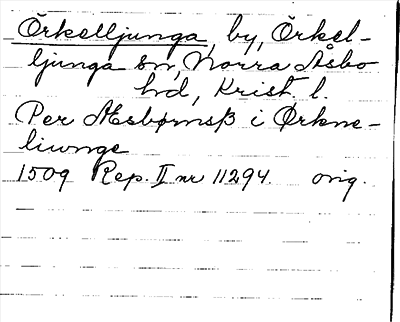 Örkelljunga, by, Örkel-
ljunga sn, Norra Åsbo
hd, Krist. l.
Per Æsbørnsß i Ørkne-
liunge
1509 Rep. II nr 11294. orig.